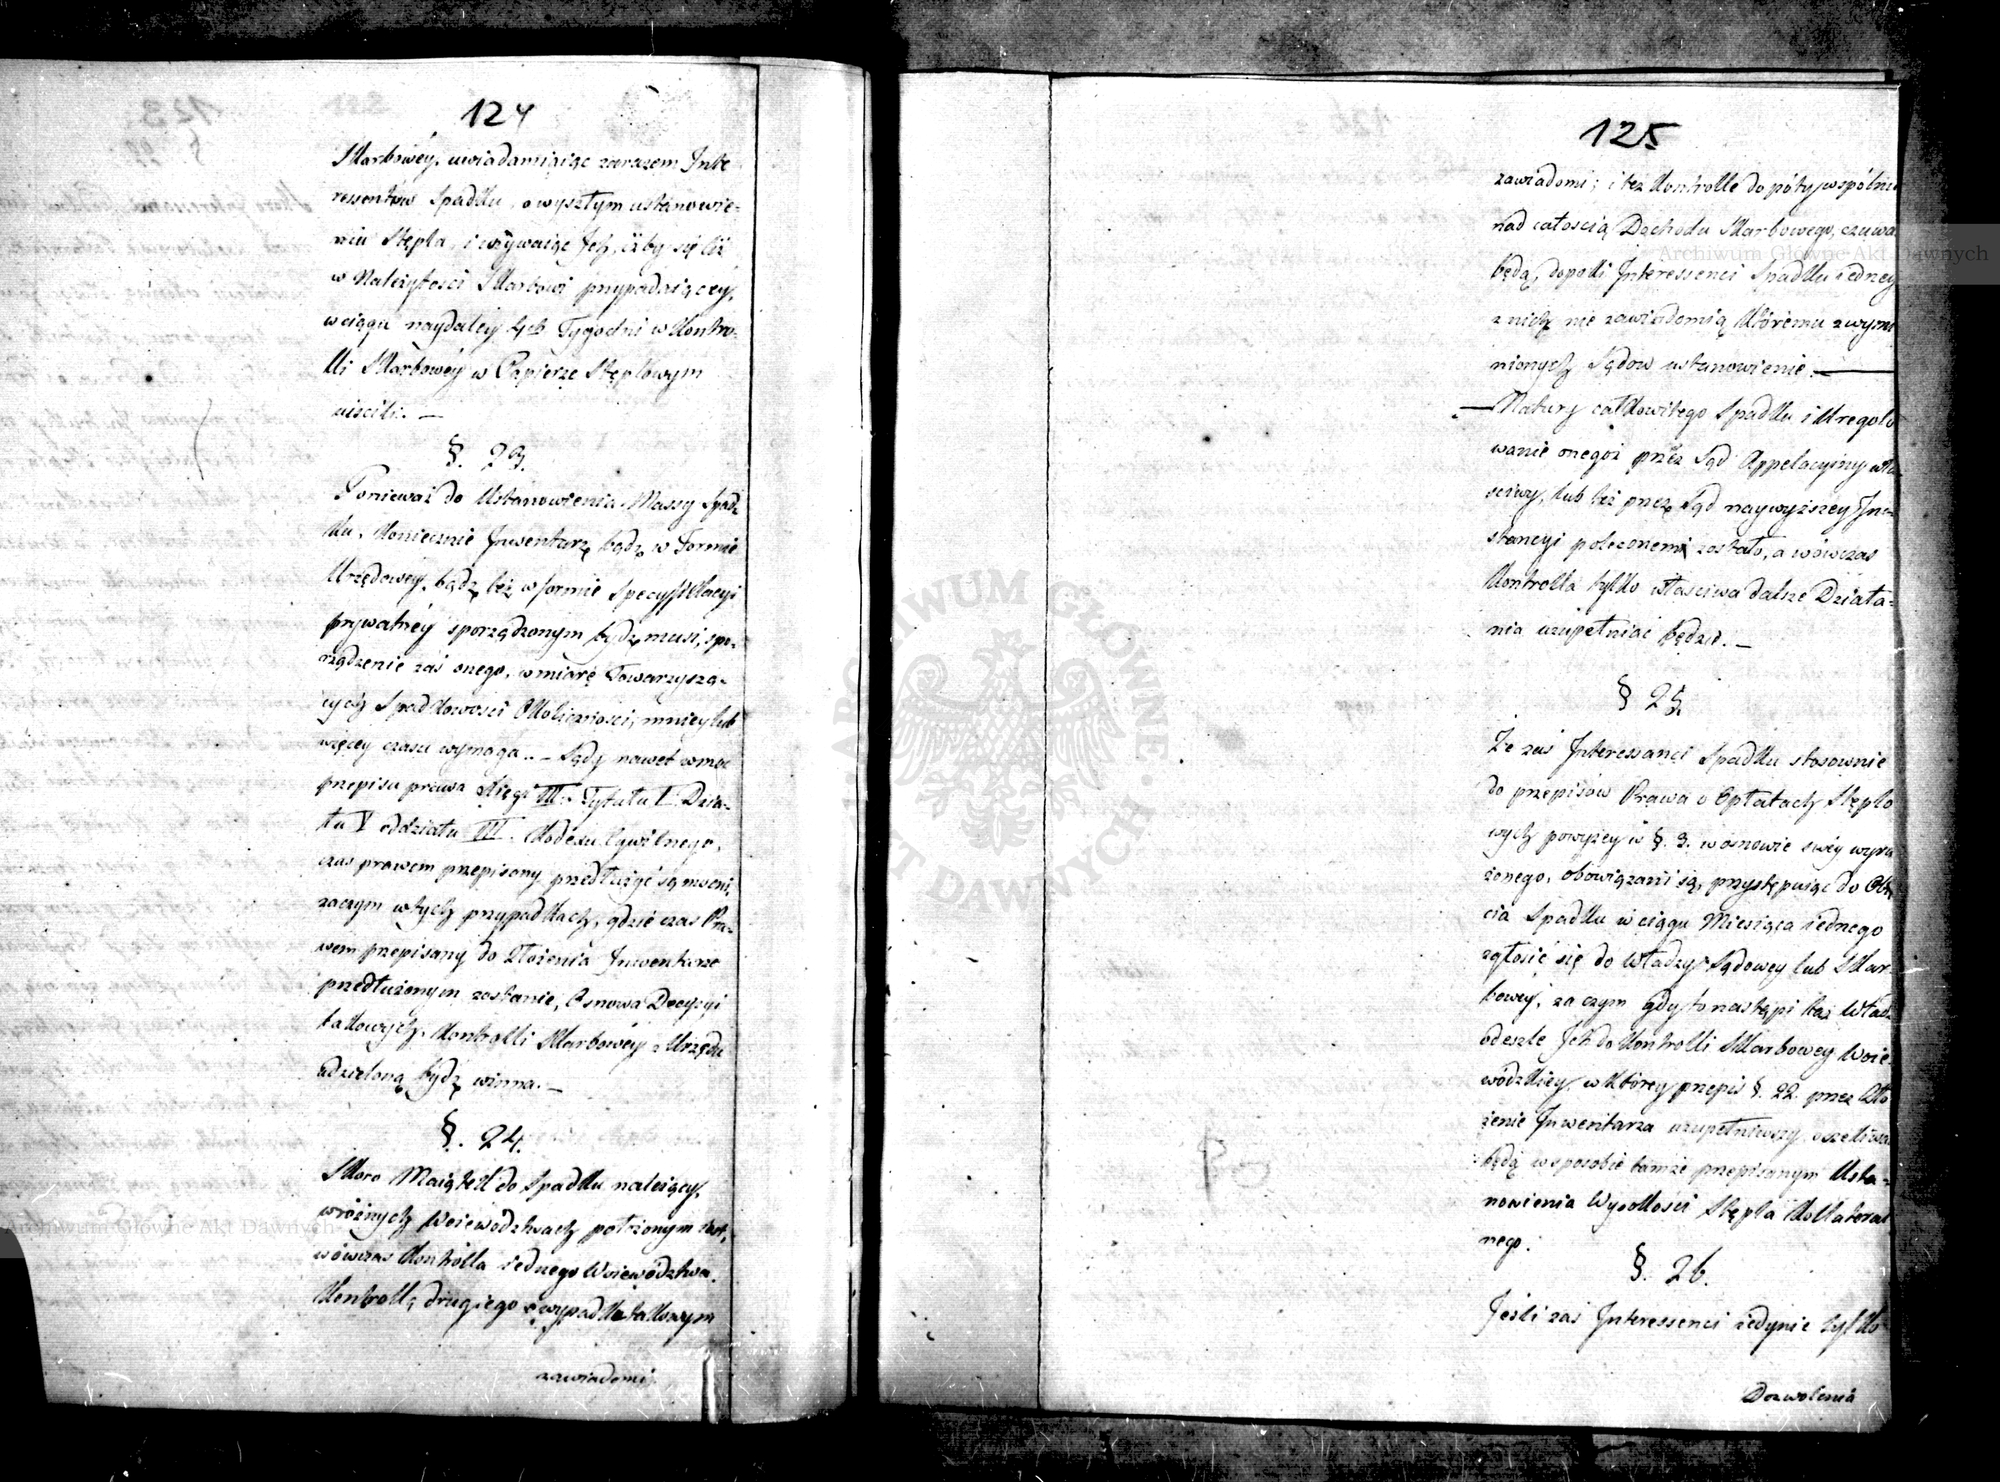 124
Skarbowéy, uwiadamiaiąc zarazem Inte
ressentów Spadku, o wyszłym ustanowie-
niu Stępla, i wzywaiąc Ich, iżby się iż
w Należytości Skarbowi przypadaiącéy,
w ciągu naydaléy 4ch Tygodni w Kontro-
lli Skarbowéy w Papierze Stęplowym
uiścili. —
§. 23.
Ponieważ do Ustanowienia Massy Spad
ku, koniecznie Inwentarz, bądz w Formie
Urzędowéy, bądz też w formie Specyfikacyi
prywatnéy sporządzonym bydz musi, spo-
rządzenie zaś onego, w miarę Towarzyszą-
cych Spadkowości Okoliczności, mniéy lub
więcéy czasu wymaga. — Sądy nawet w moc
przepisu prawa Xięgi III. Tytułu I. Dzia-
łu V oddziału III. Kodexu Cywilnego,
czas prawem przepisany przedłużyć są mocni,
zaczym w tych przypadkach, gdzie czas Pra-
wem przepisany do Złożenia Inwentarza
przedłużonym zostanie, Osnowa Decyzyi
takowych, Kontrolli Skarbowéy z Urzędu
udzieloną bydz winna. —
§. 24.
Skoro Maiątek do Spadku należący,
w różnych Woiewództwach położonym iest,
wówczas Kontrolla iednego Woiewództwa
Kontrollę drugiego o wypadku takowym
zawiadomi
125
zawiadomi; i też Kontrolle do póty wspólnie
nad całością Dochodu Skarbowego, czuwać
będą, dopóki Interessenci Spadku iednéy
z nich nie zawiadomią któremu z wymi
nionych Sądow ustanowienie —
— Natury całkowitego Spadku i Uregulo
wanie onegoż przez Sąd Appelacyiny wła
ściwy, lub też przez Sąd naywyższéy In-
stancyi poleconem zostało, a wówczas
Kontrolla tylko właściwa dalsze Działa-
nia uzupełniać będzie. —
§ 25.
Że zaś Interessanci Spadku stosownie
do przepisów Prawa o Opłatach Stęplo
wych powyżéy w §. 3. w osnowie swéy wyra
żonego, obowiązani są, przystępuiąc do Obię
cia Spadku w ciągu Miesiąca iednego
zgłosić się do Władzy Sądowéy lub Skar-
bowéy, zaczym gdy to nastąpi taż Władz
odeszle Ich do Kontrolli Skarbowéy Woie
wódzkiéy, w któréy przepis §. 22. przez Zło
żenie Inwentarza uzupełniwszy, oczekiwać
będą w sposobie tamże przepisanym Usta-
nowienia Wysokości Stępla Kollateral
nego.
§. 26.
Jeśli zaś Interessenci iedynie tylko
Dozwolenia
Archiwum Główne Akt Dawnych
Archiwum Główne Akt Dawnych
ARCHIWUM GŁÓWNE AKT DAWNYCH